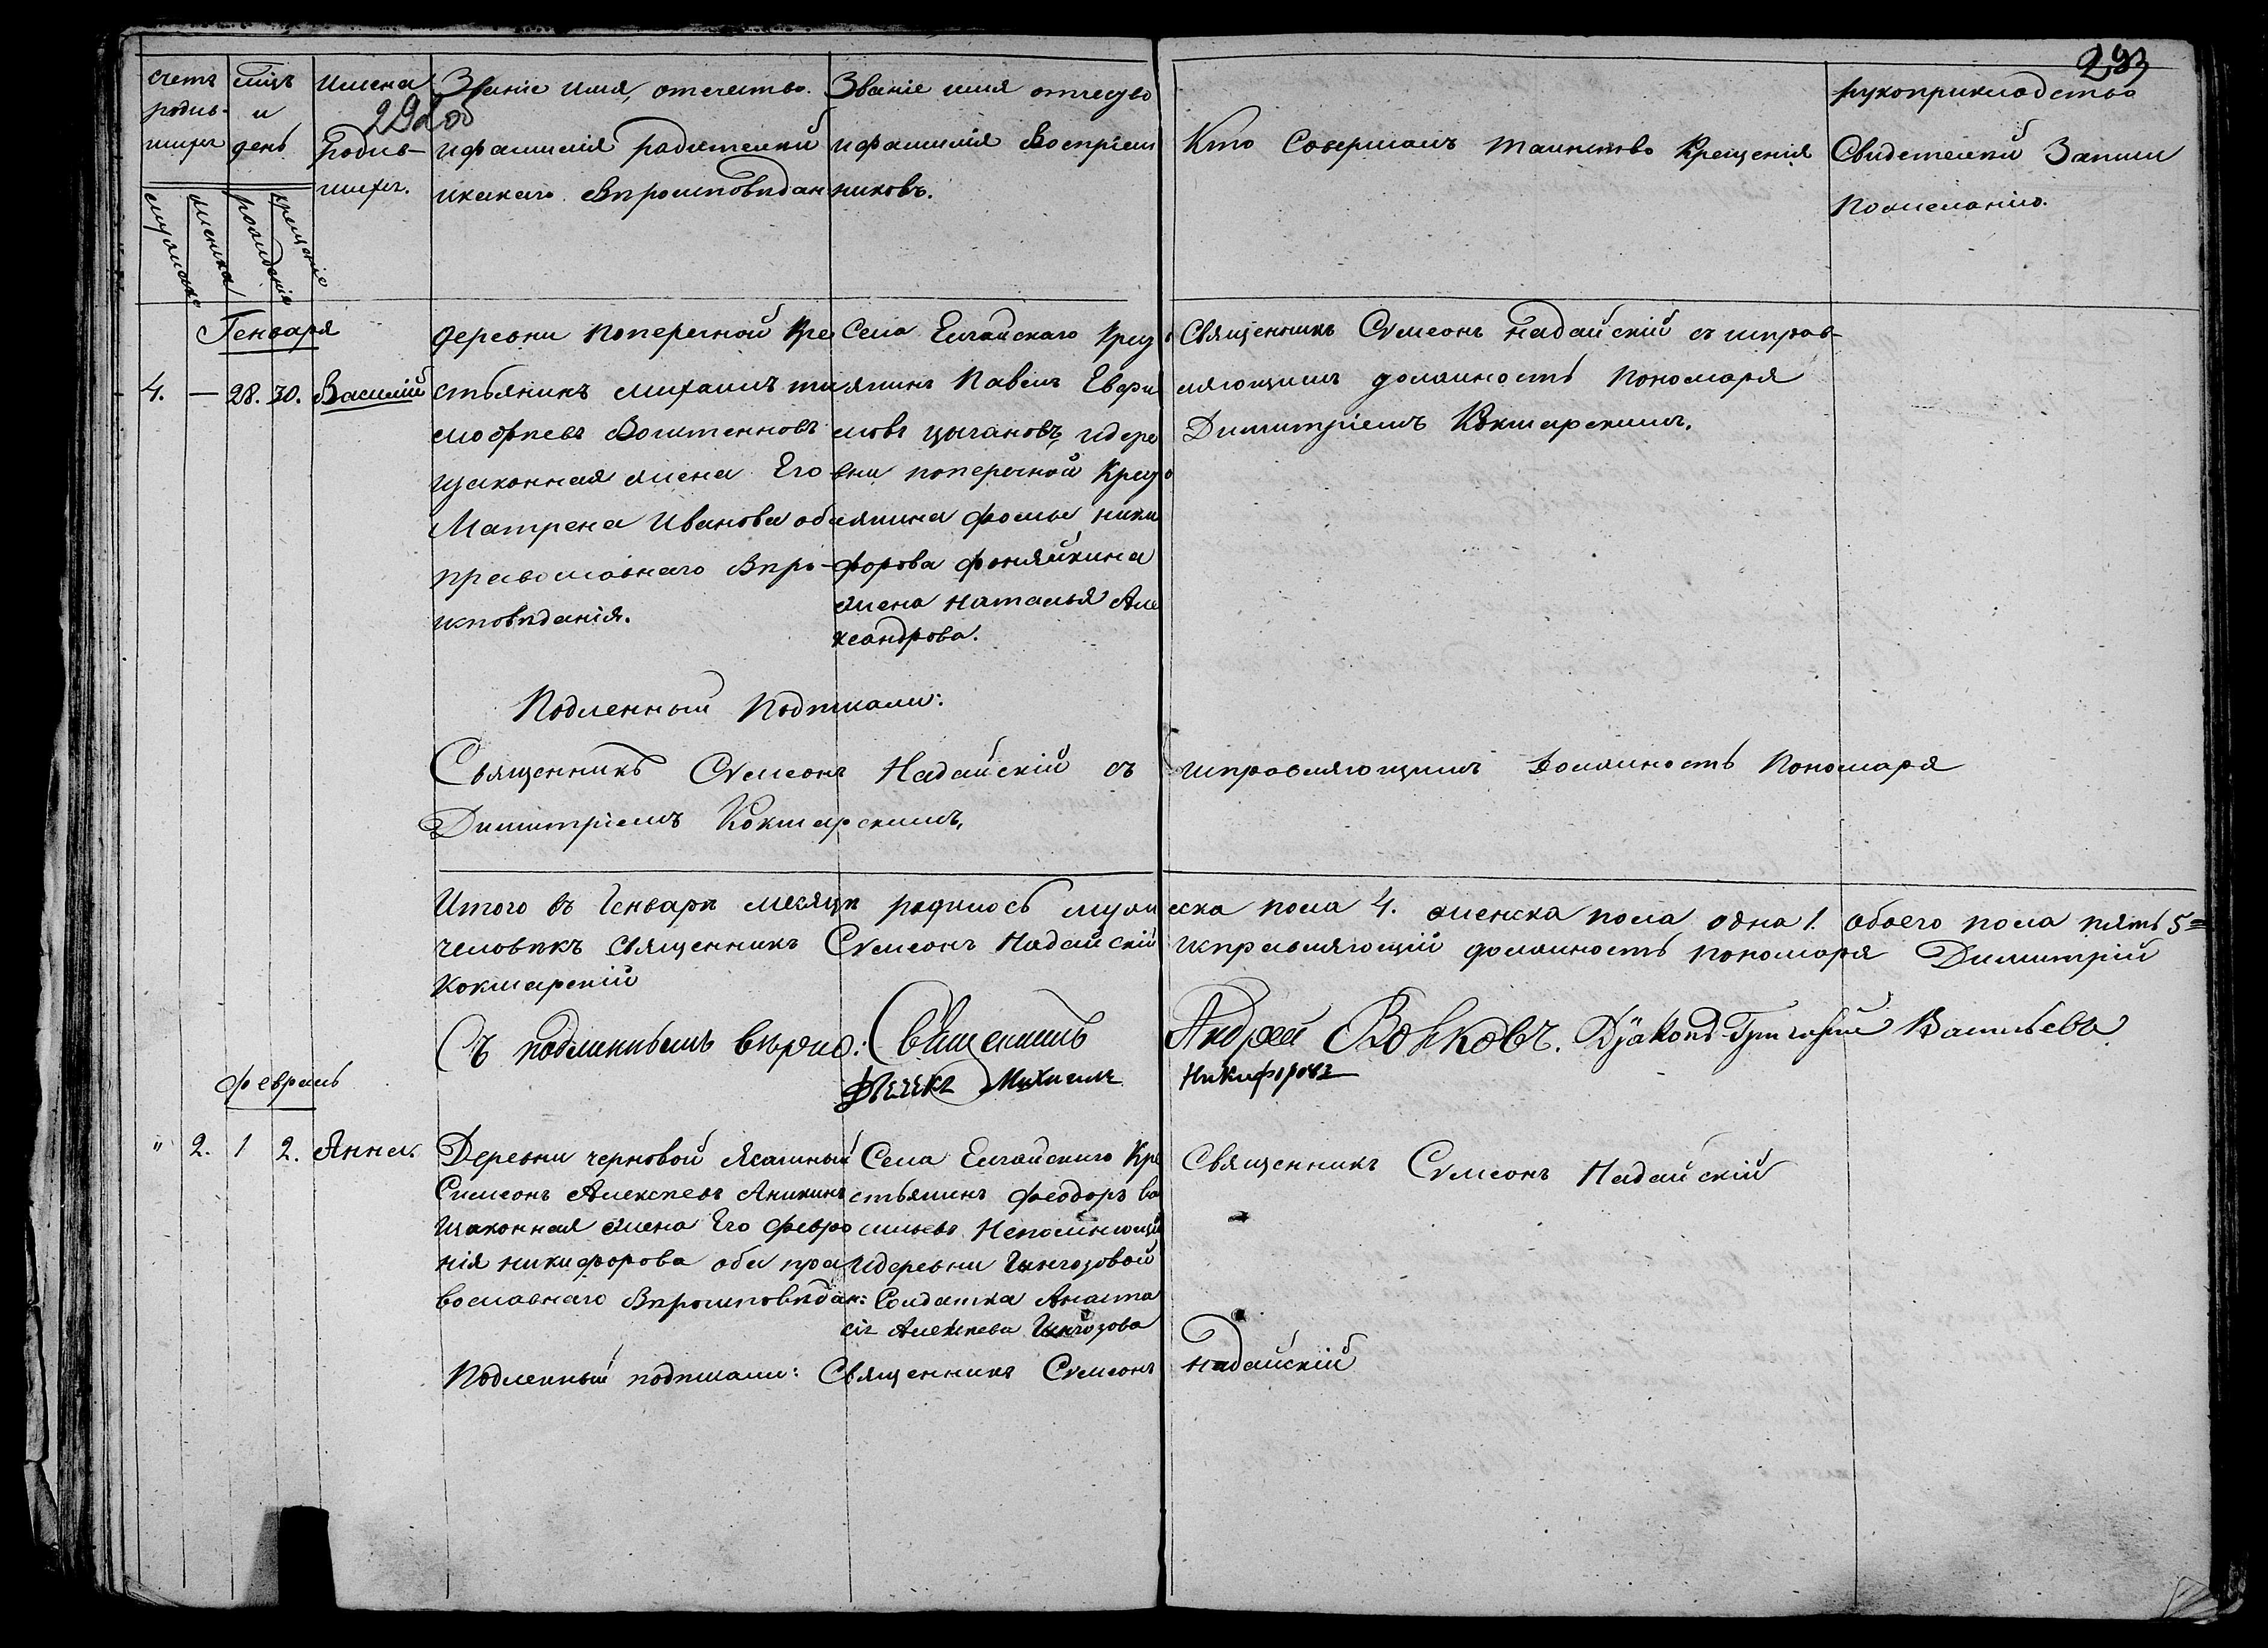 293
292 об
счетъ родив-шихся
мѣсяцъ и день
Имена Родив-шихся.
Званіе имя, отчество. и фамилія родителей и какаго вѣроисповѣдан
Званіе имя отчество и фамилія Воспріем никовъ.
Кто Совершалъ таинство Крещенія
рукоприкладство Свидетелей Записи По желанію.
мужеска
женска
рожденія
крещеніе
Генваря
4. — 28. 30. Василій
деревни Поперечной Кре
стьянинъ Михаилъ ти
мофѣевъ
изаконная жена Его
Матрена Иванова оба
православнаго Вѣро-
исповѣданія.
Села Елгайскаго Крес
тянинъ Павелъ Евфи
мовъ цыгановъ, идере
вни поперечной Крес
тянина фомы ники
форова фоняйкина
жена Наталья Але
ксандрова.
Священникъ Сумеонъ Надайскій съ исправ-
ляющимъ должность Пономаря
Димитріемъ Кокшарскимъ.
Подленный Подписали:
Священникъ Сумеонъ Надайскій съ исправляющимъ должность Пономаря
Димитріемъ Кокшарскимъ,
Итого въ Генварѣ месяцѣ родилось мужеска пола 4. женска пола одна 1. обоего пола пять 5=
человѣкъ Священникъ Сумеонъ Надайскій исправляющій должность пономаря Димитрій
Кокшарскій
Съ подлиннымъ вѣрно: Священникъ Андрей Волковъ. Діаконъ Григорій Васильевъ
Михаилъ Никифоровъ
Февраль
" 2. 1 2. Анна.
Деревни черновой Ясашный
Симеонъ Алексѣевъ Аникинъ
изаконная жена Его Февро
нія никифорова оба пра
вославнаго Вѣроисповѣдан:
Села Елгайскаго Кре
стьянинъ Феодоръ Ва
сильевъ Непомнющій
идеревни
Солдатка Анаста
сія Алексѣева
Священникъ Сумеонъ Надайскій
Подленный подписали: Священникъ Сумеонъ Надайскій